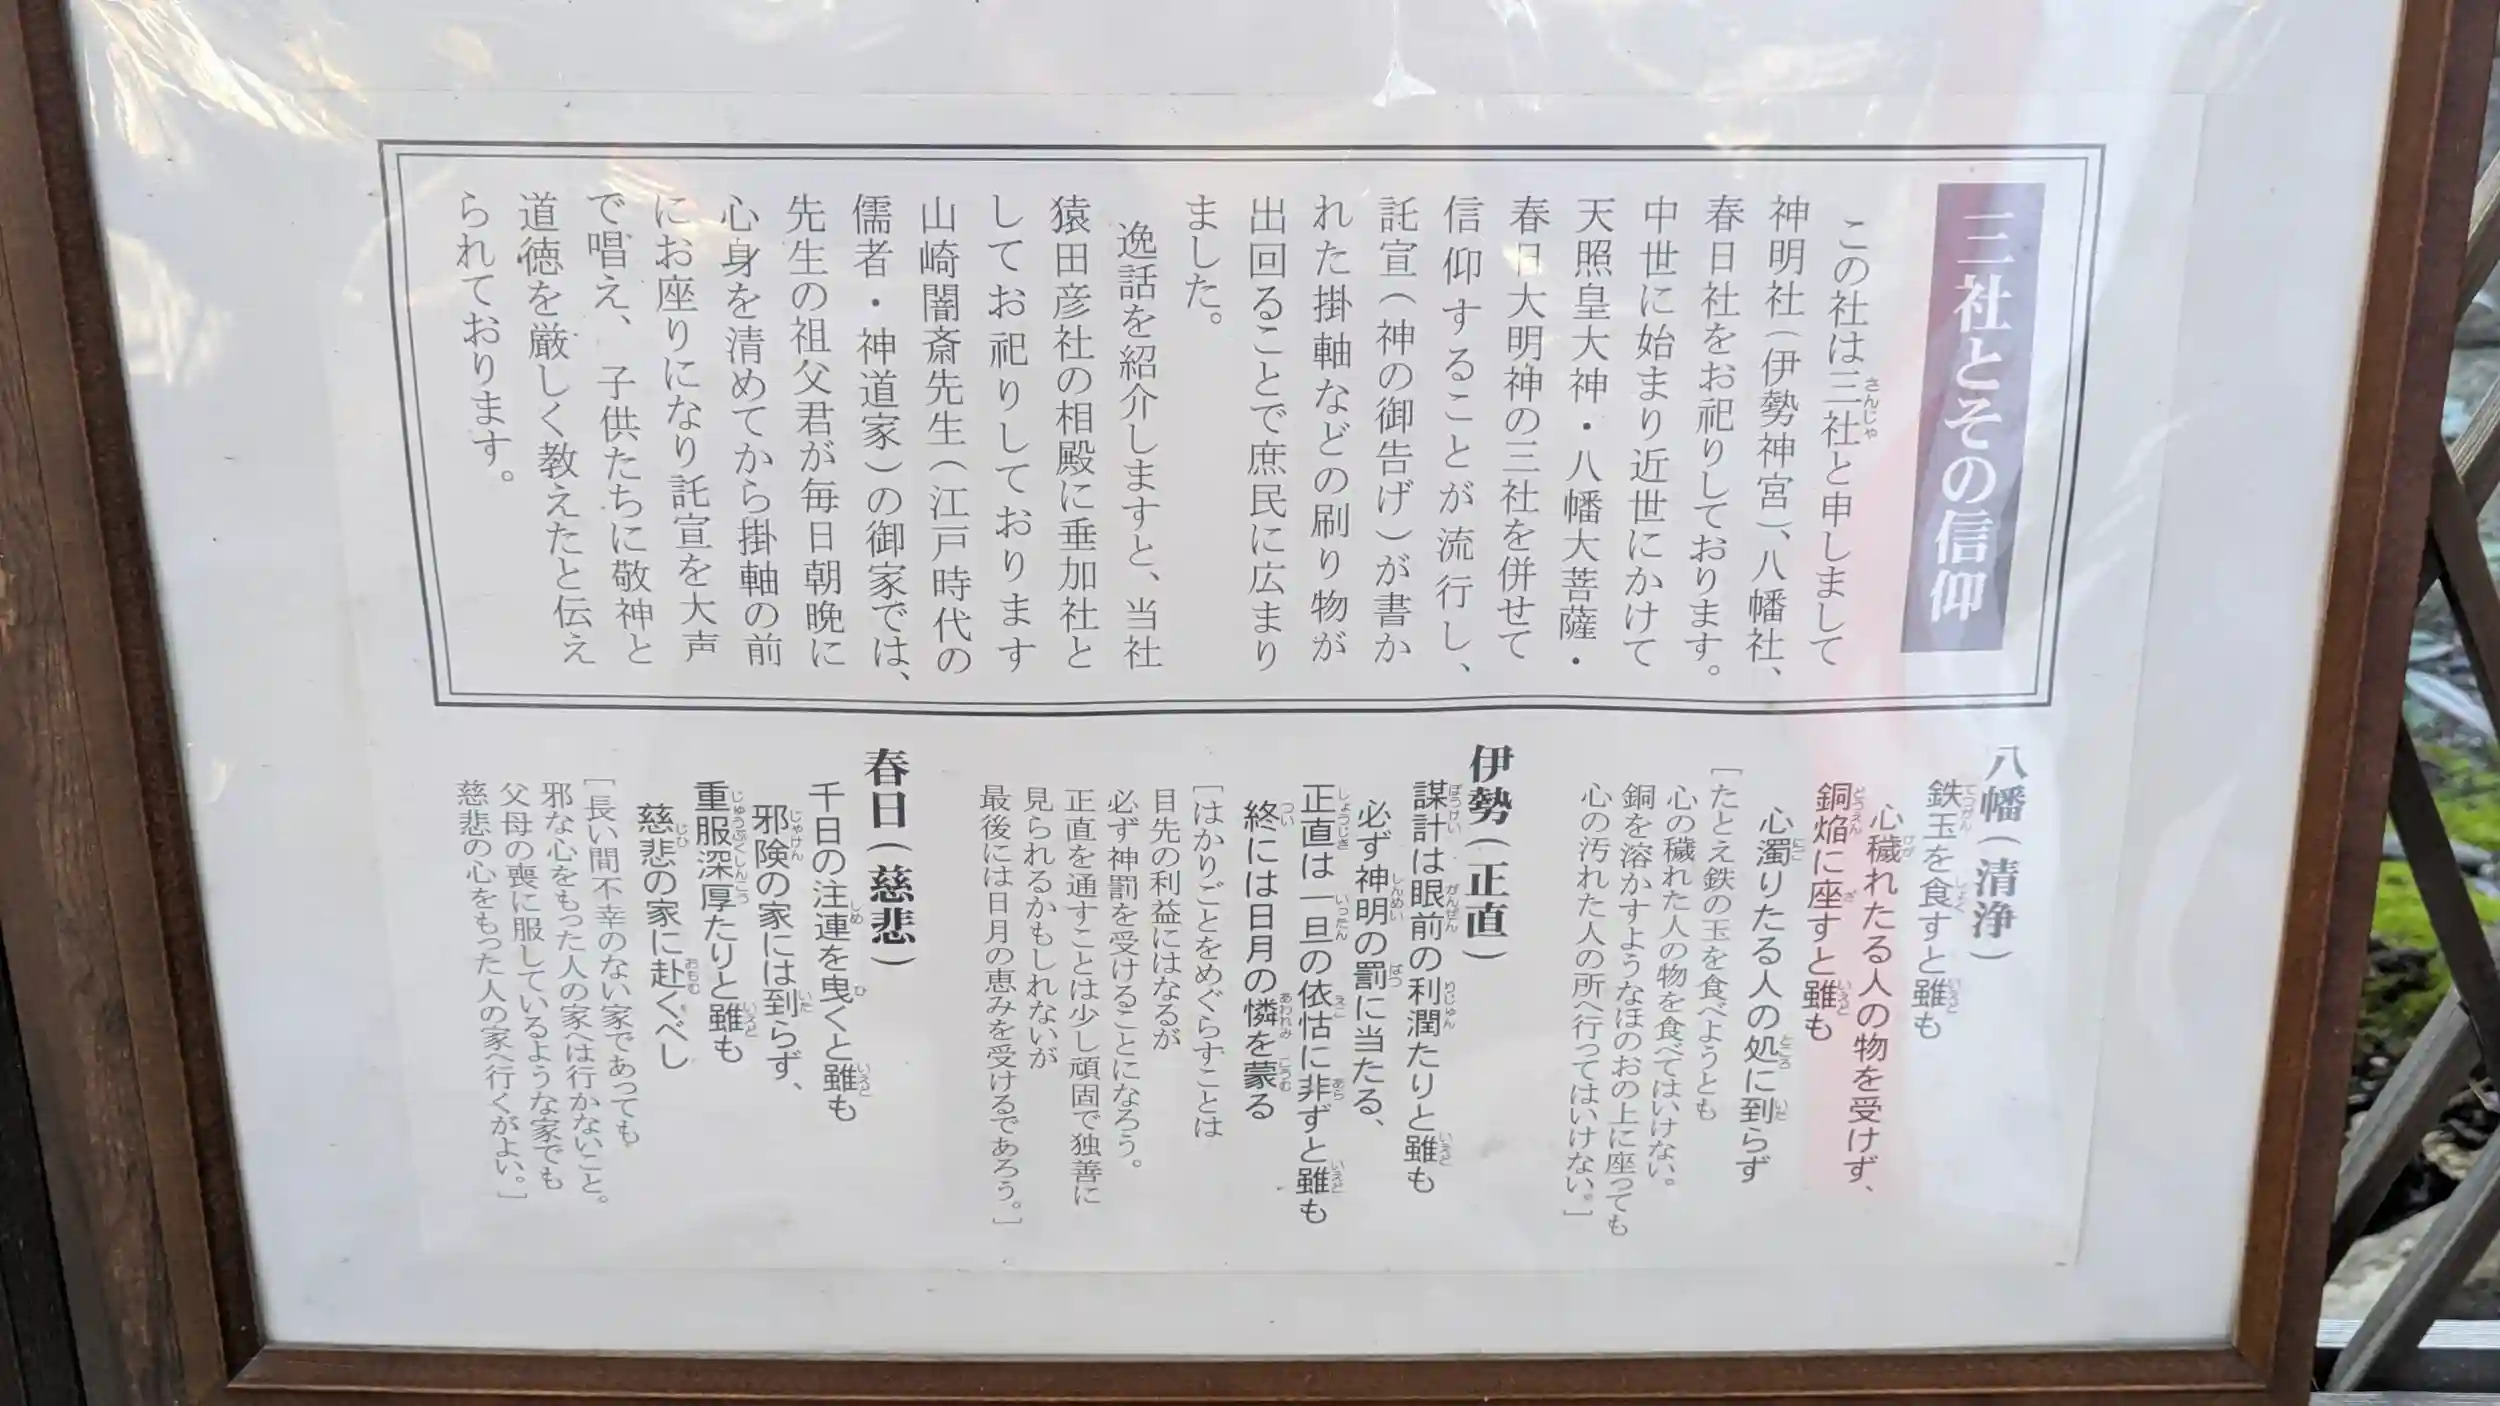 三社とその信仰
この社は三社と申しまして
神明社（伊勢神宮）、八幡社、
春日社をお祀りしております。
中世に始まり近世にかけて
天照皇大神・八幡大菩薩・
春日大明神の三社を併せて
信仰することが流行し、
託宣（神の御告げ）が書か
れた掛軸などの刷り物が
出回ることで庶民に広まり
ました。
逸話を紹介しますと、当社
猿田彦社の相殿に垂加社と
してお祀りしております
山崎闇斎先生（江戸時代の
儒者・神道家）の御家では、
先生の祖父君が毎日朝晩に
心身を清めてから掛軸の前
にお座りになり託宣を大声
で唱え、子供たちに敬神と
道徳を厳しく教えたと伝え
られております。
八幡（清浄）
鉄玉を食すと雖も
心穢れたる人の物を受けず、
銅焔に座すと雖も
心濁りたる人の処に到らず
［たとえ鉄の玉を食べようとも
心の穢れた人の物を食べてはいけない。
銅を溶かすようなほのおの上に座っても
心の汚れた人の所へ行ってはいけない。］
伊勢（正直）
謀計は眼前の利潤たりと雖も
必ず神明の罰に当たる、
正直は一旦の依怙に非ずと雖も
終には日月の憐を蒙る
［はかりごとをめぐらすことは
目先の利益にはなるが
必ず神罰を受けることになろう。
正直を通すことは少し頑固で独善に
見られるかもしれないが
最後には日月の恵みを受けるであろう。］
春日（慈悲）
千日の注連を曳くと雖も
邪険の家には到らず、
重服深厚たりと雖も
慈悲の家に赴くべし
［長い間不幸のない家であっても
邪な心をもった人の家へは行かないこと。
父母の喪に服しているような家でも
慈悲の心をもった人の家へ行くがよい。］